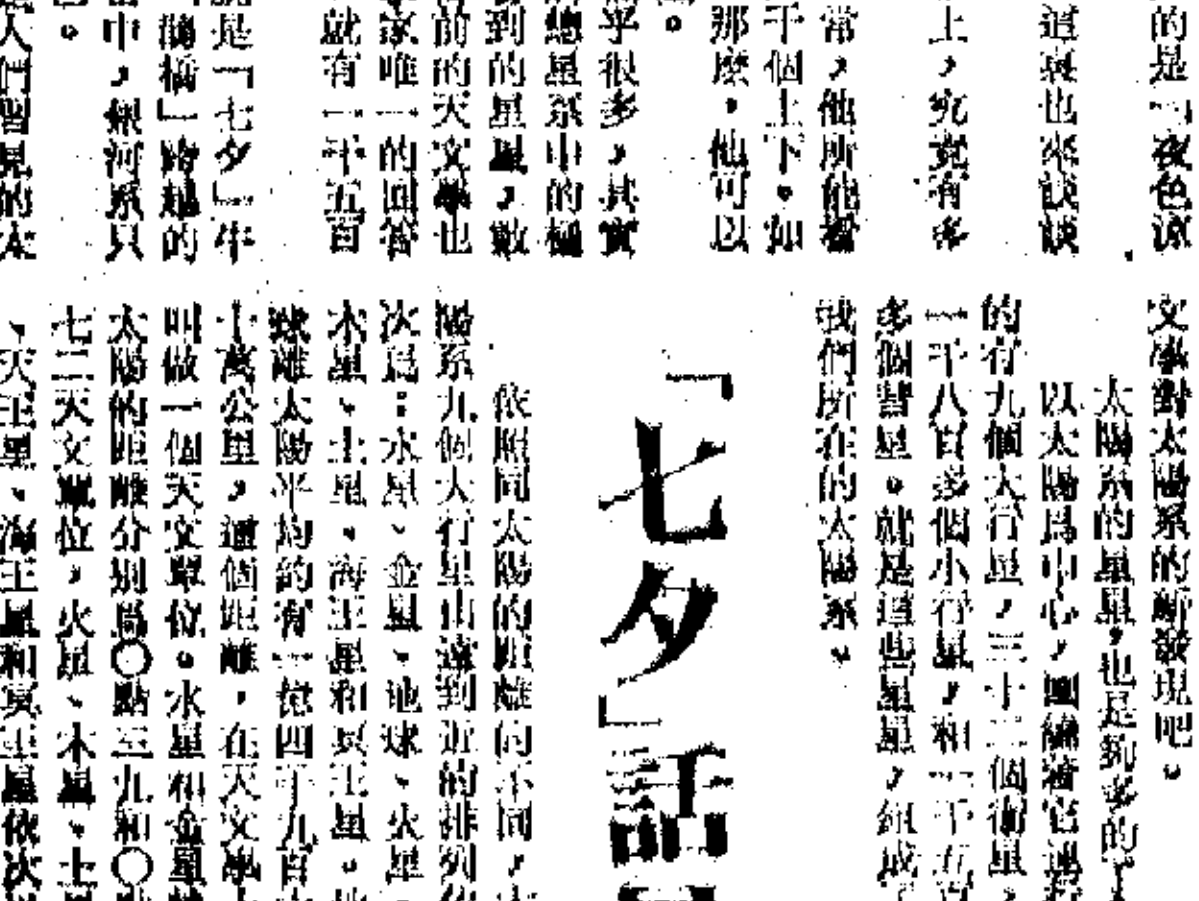 的是「夜色涼
道裏也來談談
上，究竟有多
常，他所能看
千個上下。如
那麽，他可以
乎很多，其實
總星系中的極
到的星星，數
前的天文學也
家唯一的回答
就有一千五百
是「七夕」牛
鵲橋」跨越的
中，銀河系只
人們習見的太
文學對太陽系的新發現吧。
太陽系的星星，也是夠多的了
以太陽爲中心，圍繞着它運行
的有九個大行星，三十二個衛星，
一千八百多個小行星，和一千五百
多個彗星。就是這些星星，組成了
我們所在的太陽系。
「七夕」話
依照同太陽的距離的不同，太
陽系九個大行星由遠到近的排列依
次爲：水星、金星、地球、火星、
木星、土星、海王星和冥王星。地
球離太陽平均約有一億四千九百
十萬公里，這個距離，在天文學上
叫做一個天文單位。水星和金星離
太陽的距離分别爲〇點三九和〇點
七二天文單位，火星、木星、土星
、天王星、海王星和冥王星依次